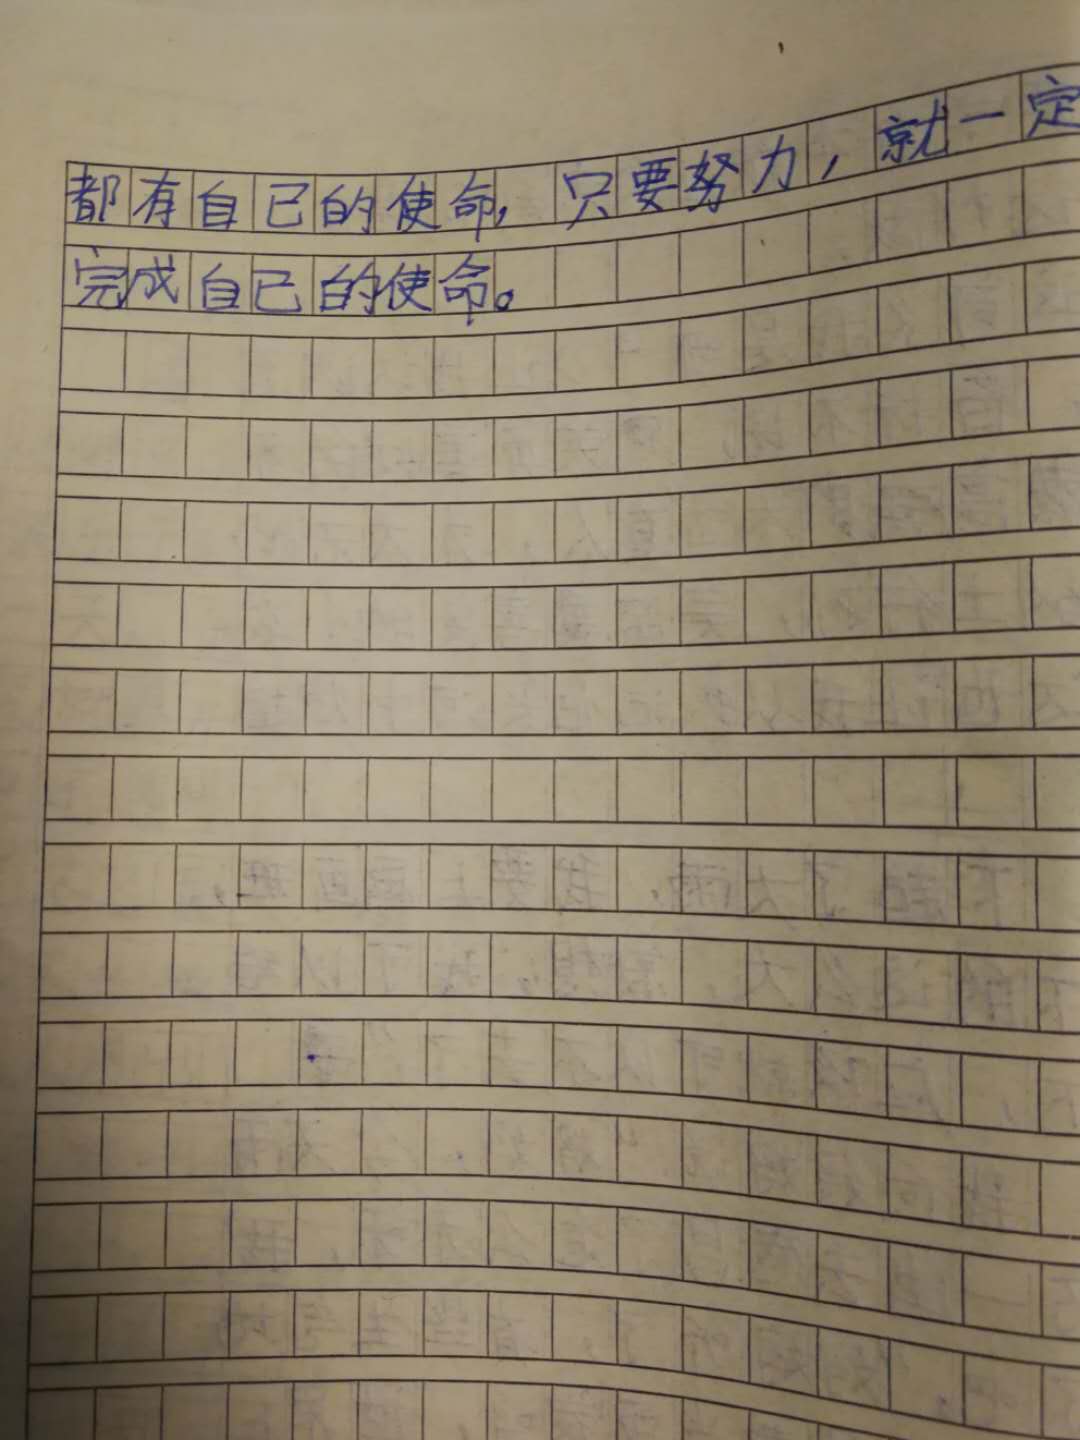 都有自己的使命，只要努力，就一定
完成自己的使命。